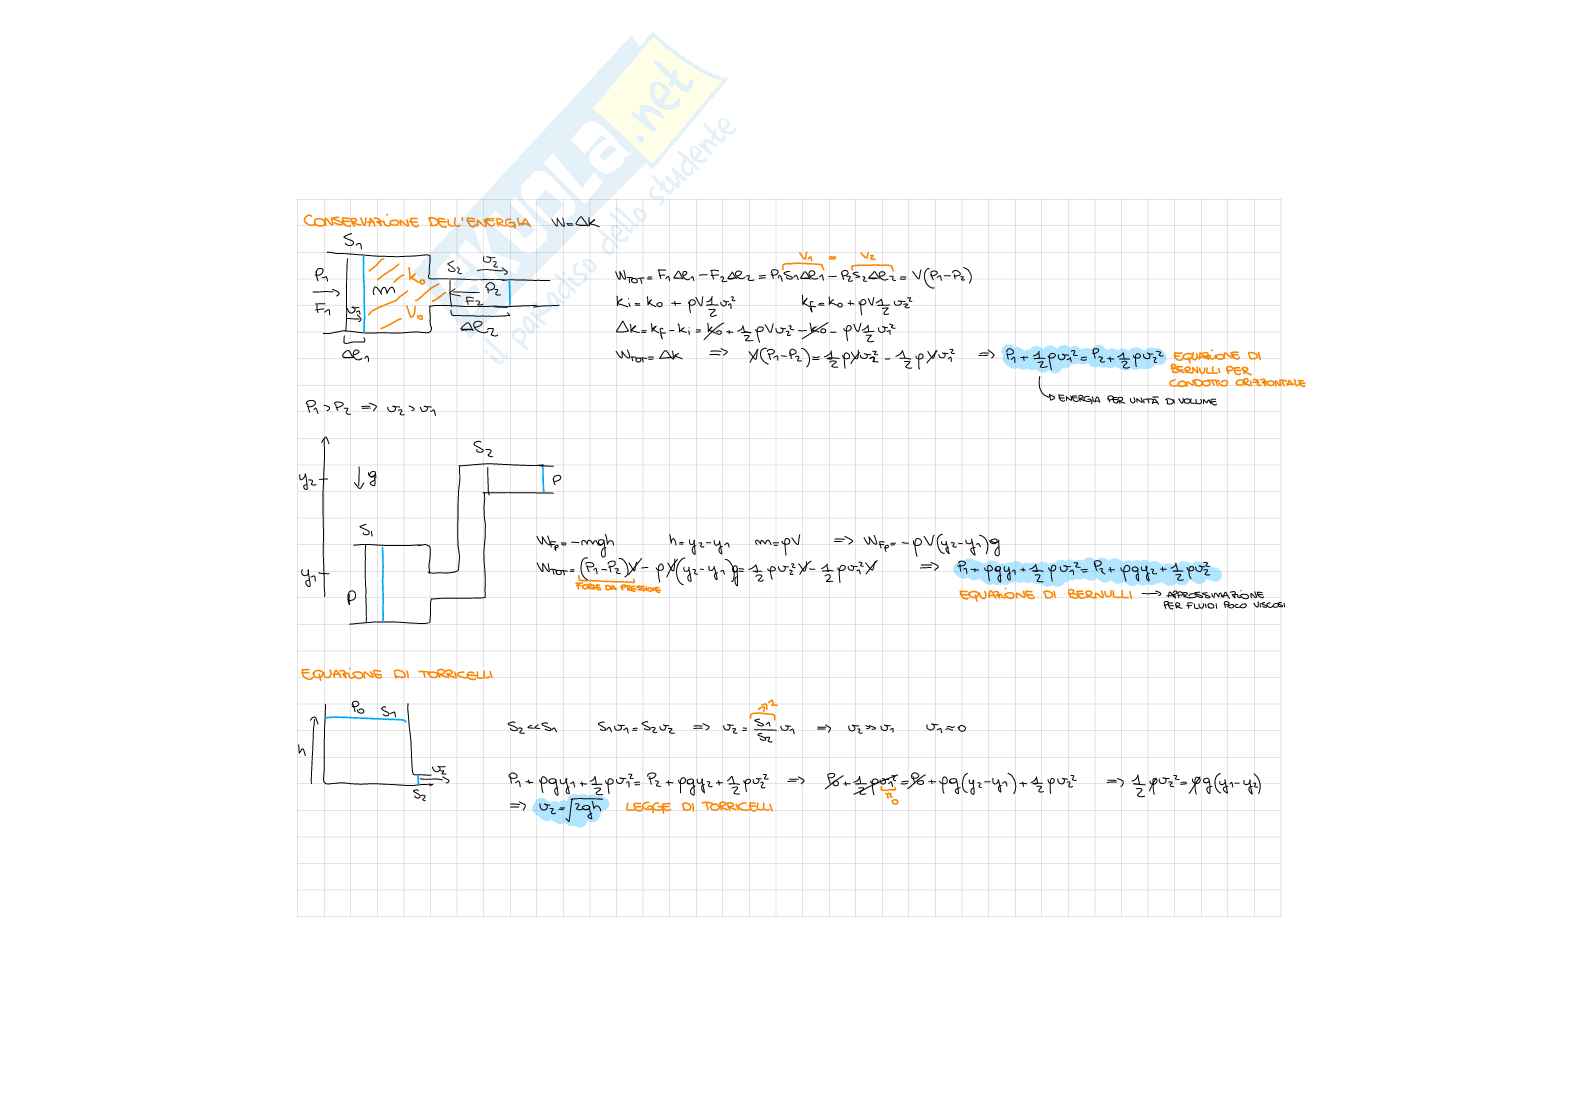 SKUOLA.net
il paradiso dello studente
CONSERVAZIONE DELL'ENERGIA W=Δk
S₁
P₁
F₁
v₁
m
k₀
V₀
Δl₁
S₂ v₂
P₂
F₂
Δl₂
V₁ = V₂
W_TOT = F₁Δl₁ - F₂Δl₂ = P₁S₁Δl₁ - P₂S₂Δl₂ = V(P₁-P₂)
ki = k₀ + ρV½v₁² kf = k₀ + ρV½v₂²
Δk = kf - ki = k₀ + ½ρVv₂² - k₀ - ρV½v₁²
W_TOT = Δk ⇒ V(P₁-P₂) = ½ρVv₂² - ½ρVv₁² ⇒ P₁ + ½ρv₁² = P₂ + ½ρv₂² EQUAZIONE DI
BERNULLI PER
CONDOTTO ORIZZONTALE
↳ ENERGIA PER UNITÀ DI VOLUME
P₁ > P₂ ⇒ v₂ > v₁
S₂
y₂ ↓g P
S₁
y₁
P
W_Fp = -mgh h = y₂-y₁ m = ρV ⇒ W_Fp = -ρV(y₂-y₁)g
W_TOT = (P₁-P₂)V - ρV(y₂-y₁)g = ½ρv₂²V - ½ρv₁²V ⇒ P₁ + ρgy₁ + ½ρv₁² = P₂ + ρgy₂ + ½ρv₂²
FORZE DA PRESSIONE
EQUAZIONE DI BERNULLI → APPROSSIMAZIONE
PER FLUIDI POCO VISCOSI
EQUAZIONE DI TORRICELLI
P₀ S₁
h
v₂
S₂
S₂ << S₁ S₁v₁ = S₂v₂ ⇒ v₂ = S₁/S₂ v₁ ⇒ v₂ >> v₁ v₁ ≈ 0
P₁ + ρgy₁ + ½ρv₁² = P₂ + ρgy₂ + ½ρv₂² ⇒ P₀ + ½ρv₁² = P₀ + ρg(y₂-y₁) + ½ρv₂² ⇒ ½ρv₂² = ρg(y₁-y₂)
≈0
⇒ v₂ = √2gh LEGGE DI TORRICELLI